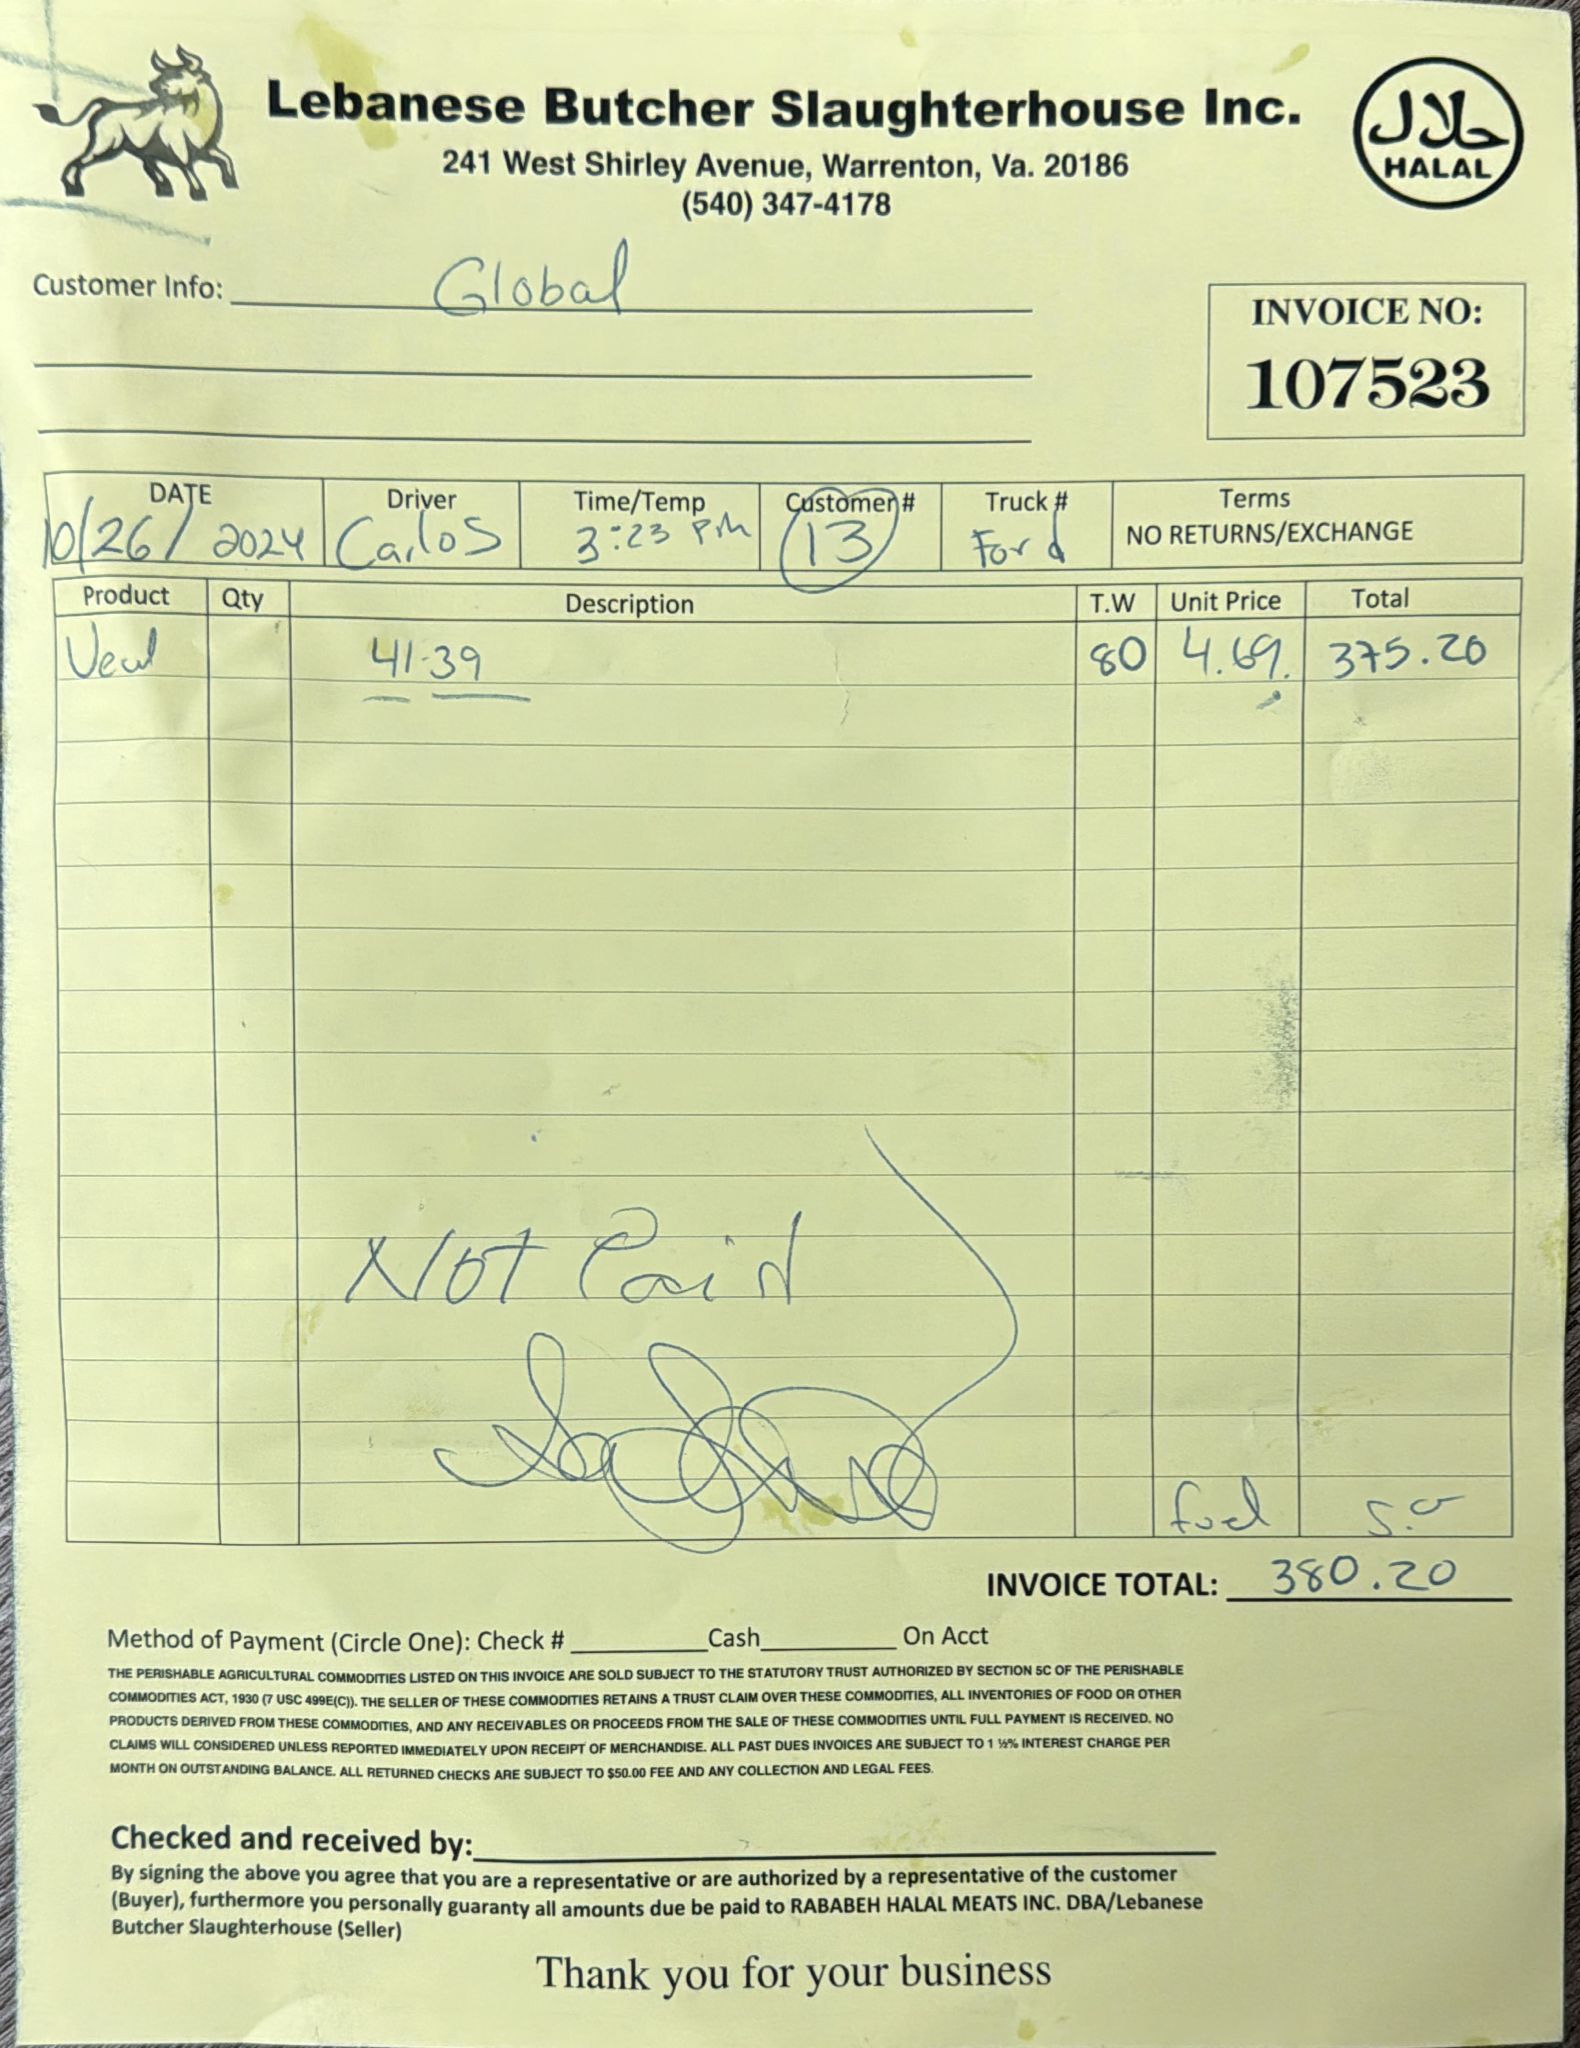 Lebanese Butcher Slaughterhouse Inc.
241 West Shirley Avenue, Warrenton, Va. 20186
(540) 347-4178
حلال
HALAL
Customer Info: Global
INVOICE NO:
107523
DATE Driver Time/Temp Customer # Truck # Terms
10/26/2024 Carlos 3:23 PM 13 Ford NO RETURNS/EXCHANGE
Product Qty Description T.W Unit Price Total
Veal 41-39 80 4.69 375.20
Not Paid
fuel 5.0
INVOICE TOTAL: 380.20
Method of Payment (Circle One): Check # Cash On Acct
THE PERISHABLE AGRICULTURAL COMMODITIES LISTED ON THIS INVOICE ARE SOLD SUBJECT TO THE STATUTORY TRUST AUTHORIZED BY SECTION 5C OF THE PERISHABLE
COMMODITIES ACT, 1930 (7 USC 499E(C)). THE SELLER OF THESE COMMODITIES RETAINS A TRUST CLAIM OVER THESE COMMODITIES, ALL INVENTORIES OF FOOD OR OTHER
PRODUCTS DERIVED FROM THESE COMMODITIES, AND ANY RECEIVABLES OR PROCEEDS FROM THE SALE OF THESE COMMODITIES UNTIL FULL PAYMENT IS RECEIVED. NO
CLAIMS WILL CONSIDERED UNLESS REPORTED IMMEDIATELY UPON RECEIPT OF MERCHANDISE. ALL PAST DUES INVOICES ARE SUBJECT TO 1 ½% INTEREST CHARGE PER
MONTH ON OUTSTANDING BALANCE. ALL RETURNED CHECKS ARE SUBJECT TO $50.00 FEE AND ANY COLLECTION AND LEGAL FEES.
Checked and received by:
By signing the above you agree that you are a representative or are authorized by a representative of the customer
(Buyer), furthermore you personally guaranty all amounts due be paid to RABABEH HALAL MEATS INC. DBA/Lebanese
Butcher Slaughterhouse (Seller)
Thank you for your business